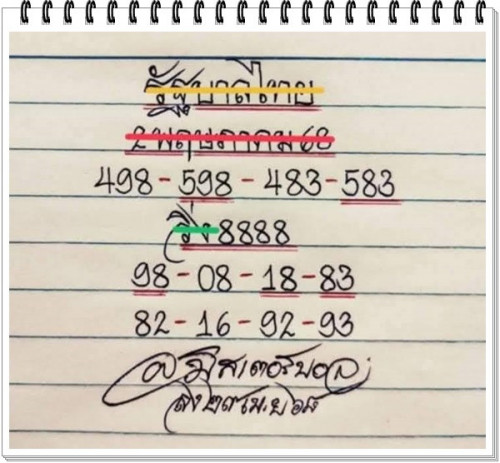 รัฐบาลไทย
2 พฤษภาคม 68
498-598-483-583
วิ่ง 8888
98-08-18-83
82-16-92-93
อ.มิสเตอร์บอล